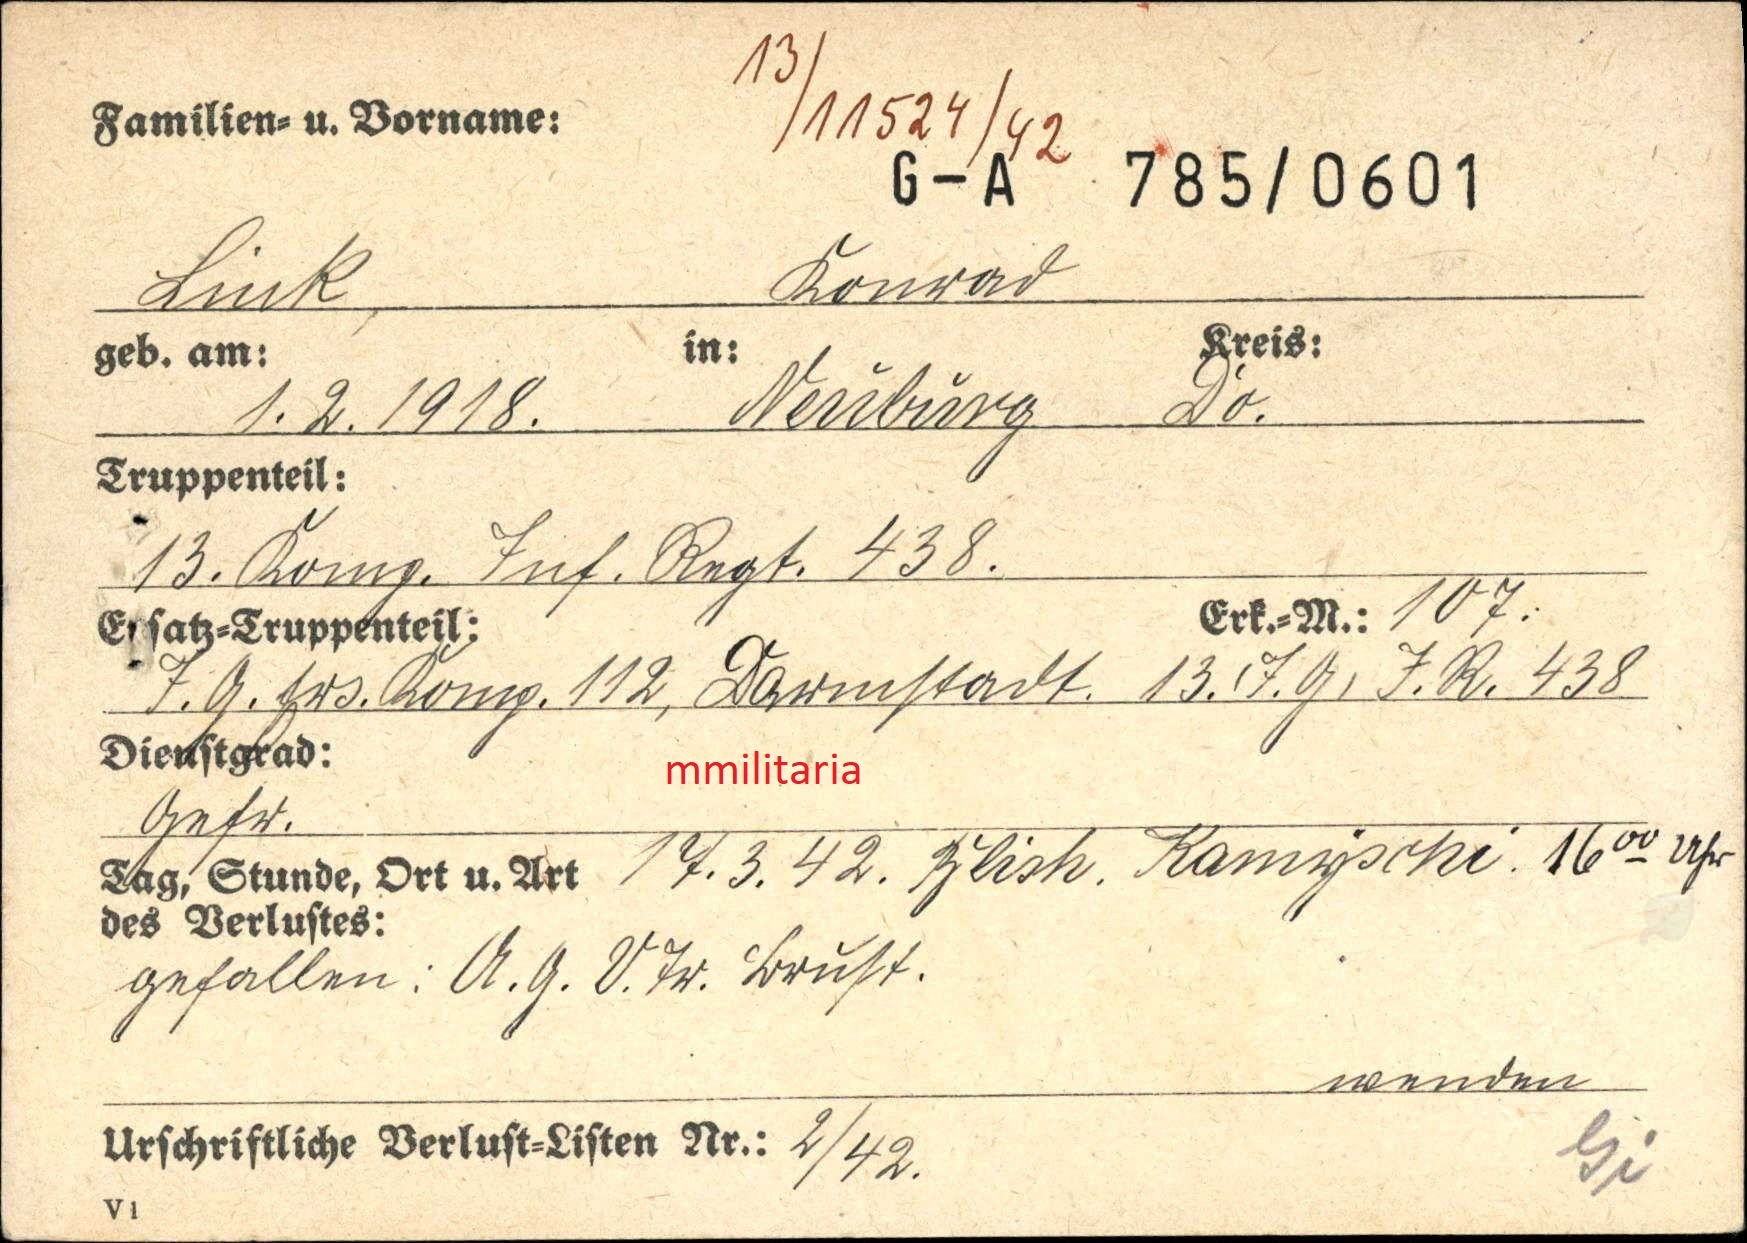 13/11524/42
Familien- u. Vorname:
G-A 785/0601
Link, Konrad
geb. am: in: Kreis:
1. 2. 1918. Neuburg Do.
Truppenteil:
13. Komp. Inf. Regt. 438.
Ersatz-Truppenteil: Erk.-M.: 107.
J. G. Ers. Komp. 112, Darmstadt. 13. J. G. J. R. 438
Dienstgrad:
mmilitaria
Gefr.
Tag, Stunde, Ort u. Art 17. 3. 42. Kamyschi. 16 00 Uhr
des Verlustes:
gefallen: A. G. V. Tr. Brust.
wenden
Urschriftliche Verlust-Listen Nr.: 2/42.
Gi
V 1